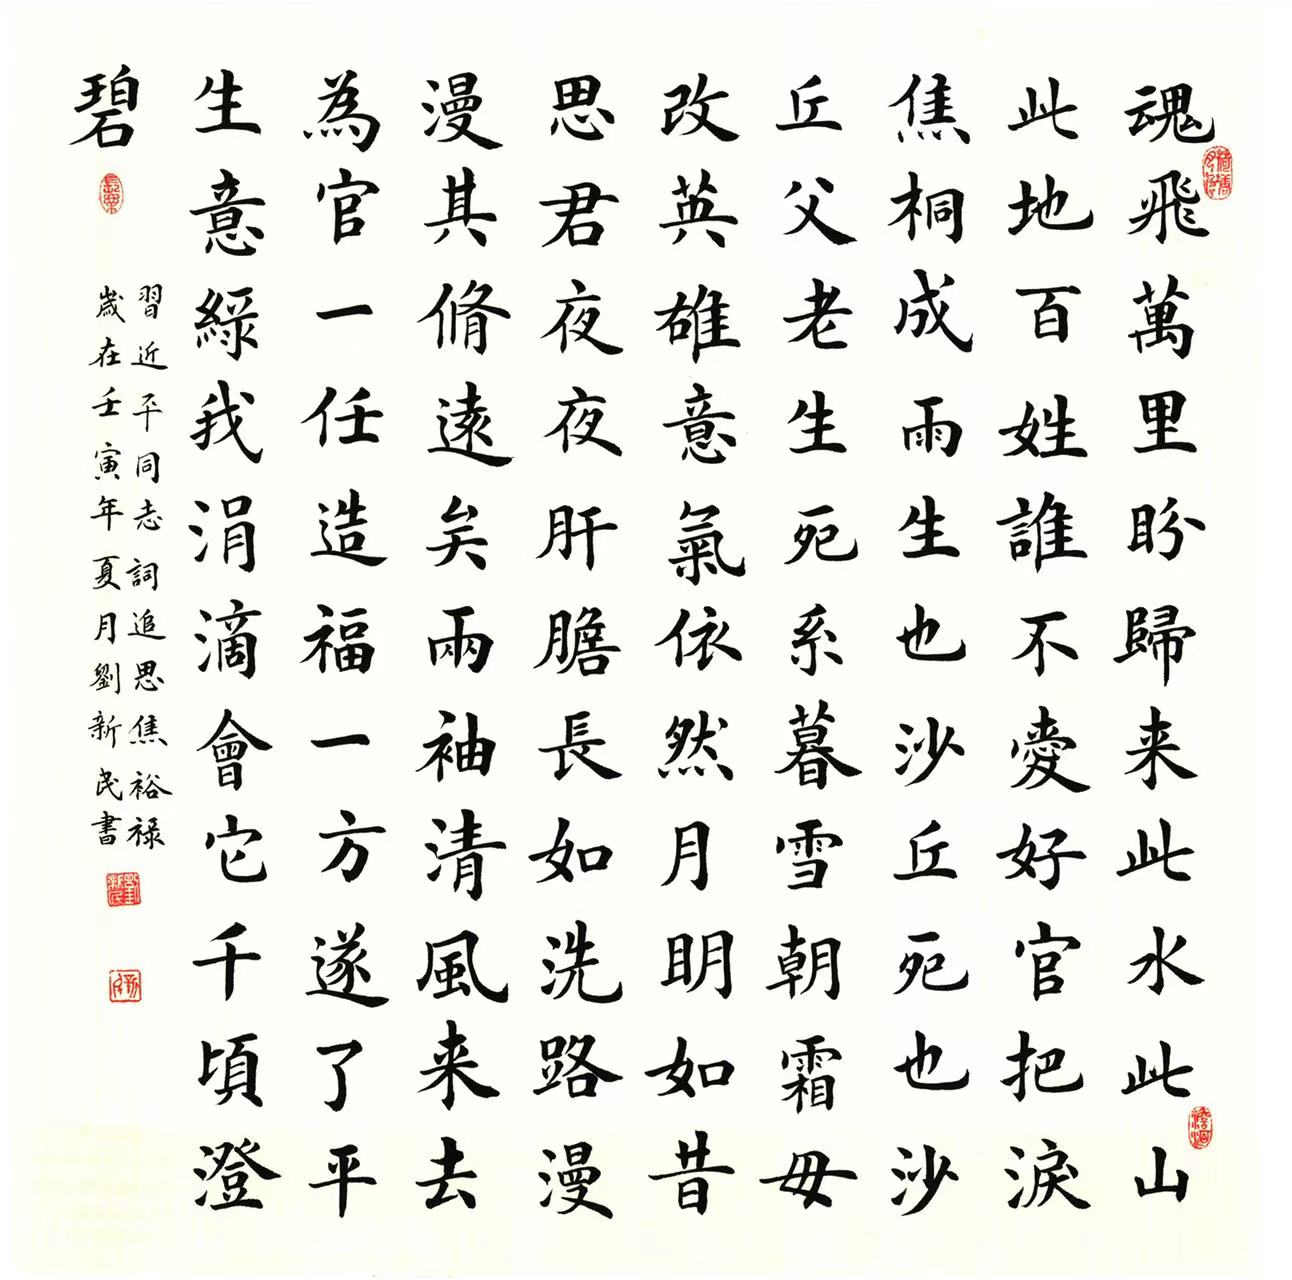 魂飛萬里盼歸来此水此山
此地百姓誰不愛好官把淚
焦桐成雨生也沙丘死也沙
丘父老生死系暮雪朝霜毋
改英雄意氣依然月明如昔
思君夜夜肝膽長如洗路漫
漫其脩遠矣兩袖清風来去
為官一任造福一方遂了平
生意綠我涓滴會它千頃澄
碧
習近平同志詞追思焦裕禄
歲在壬寅年夏月劉新民書
劉新民